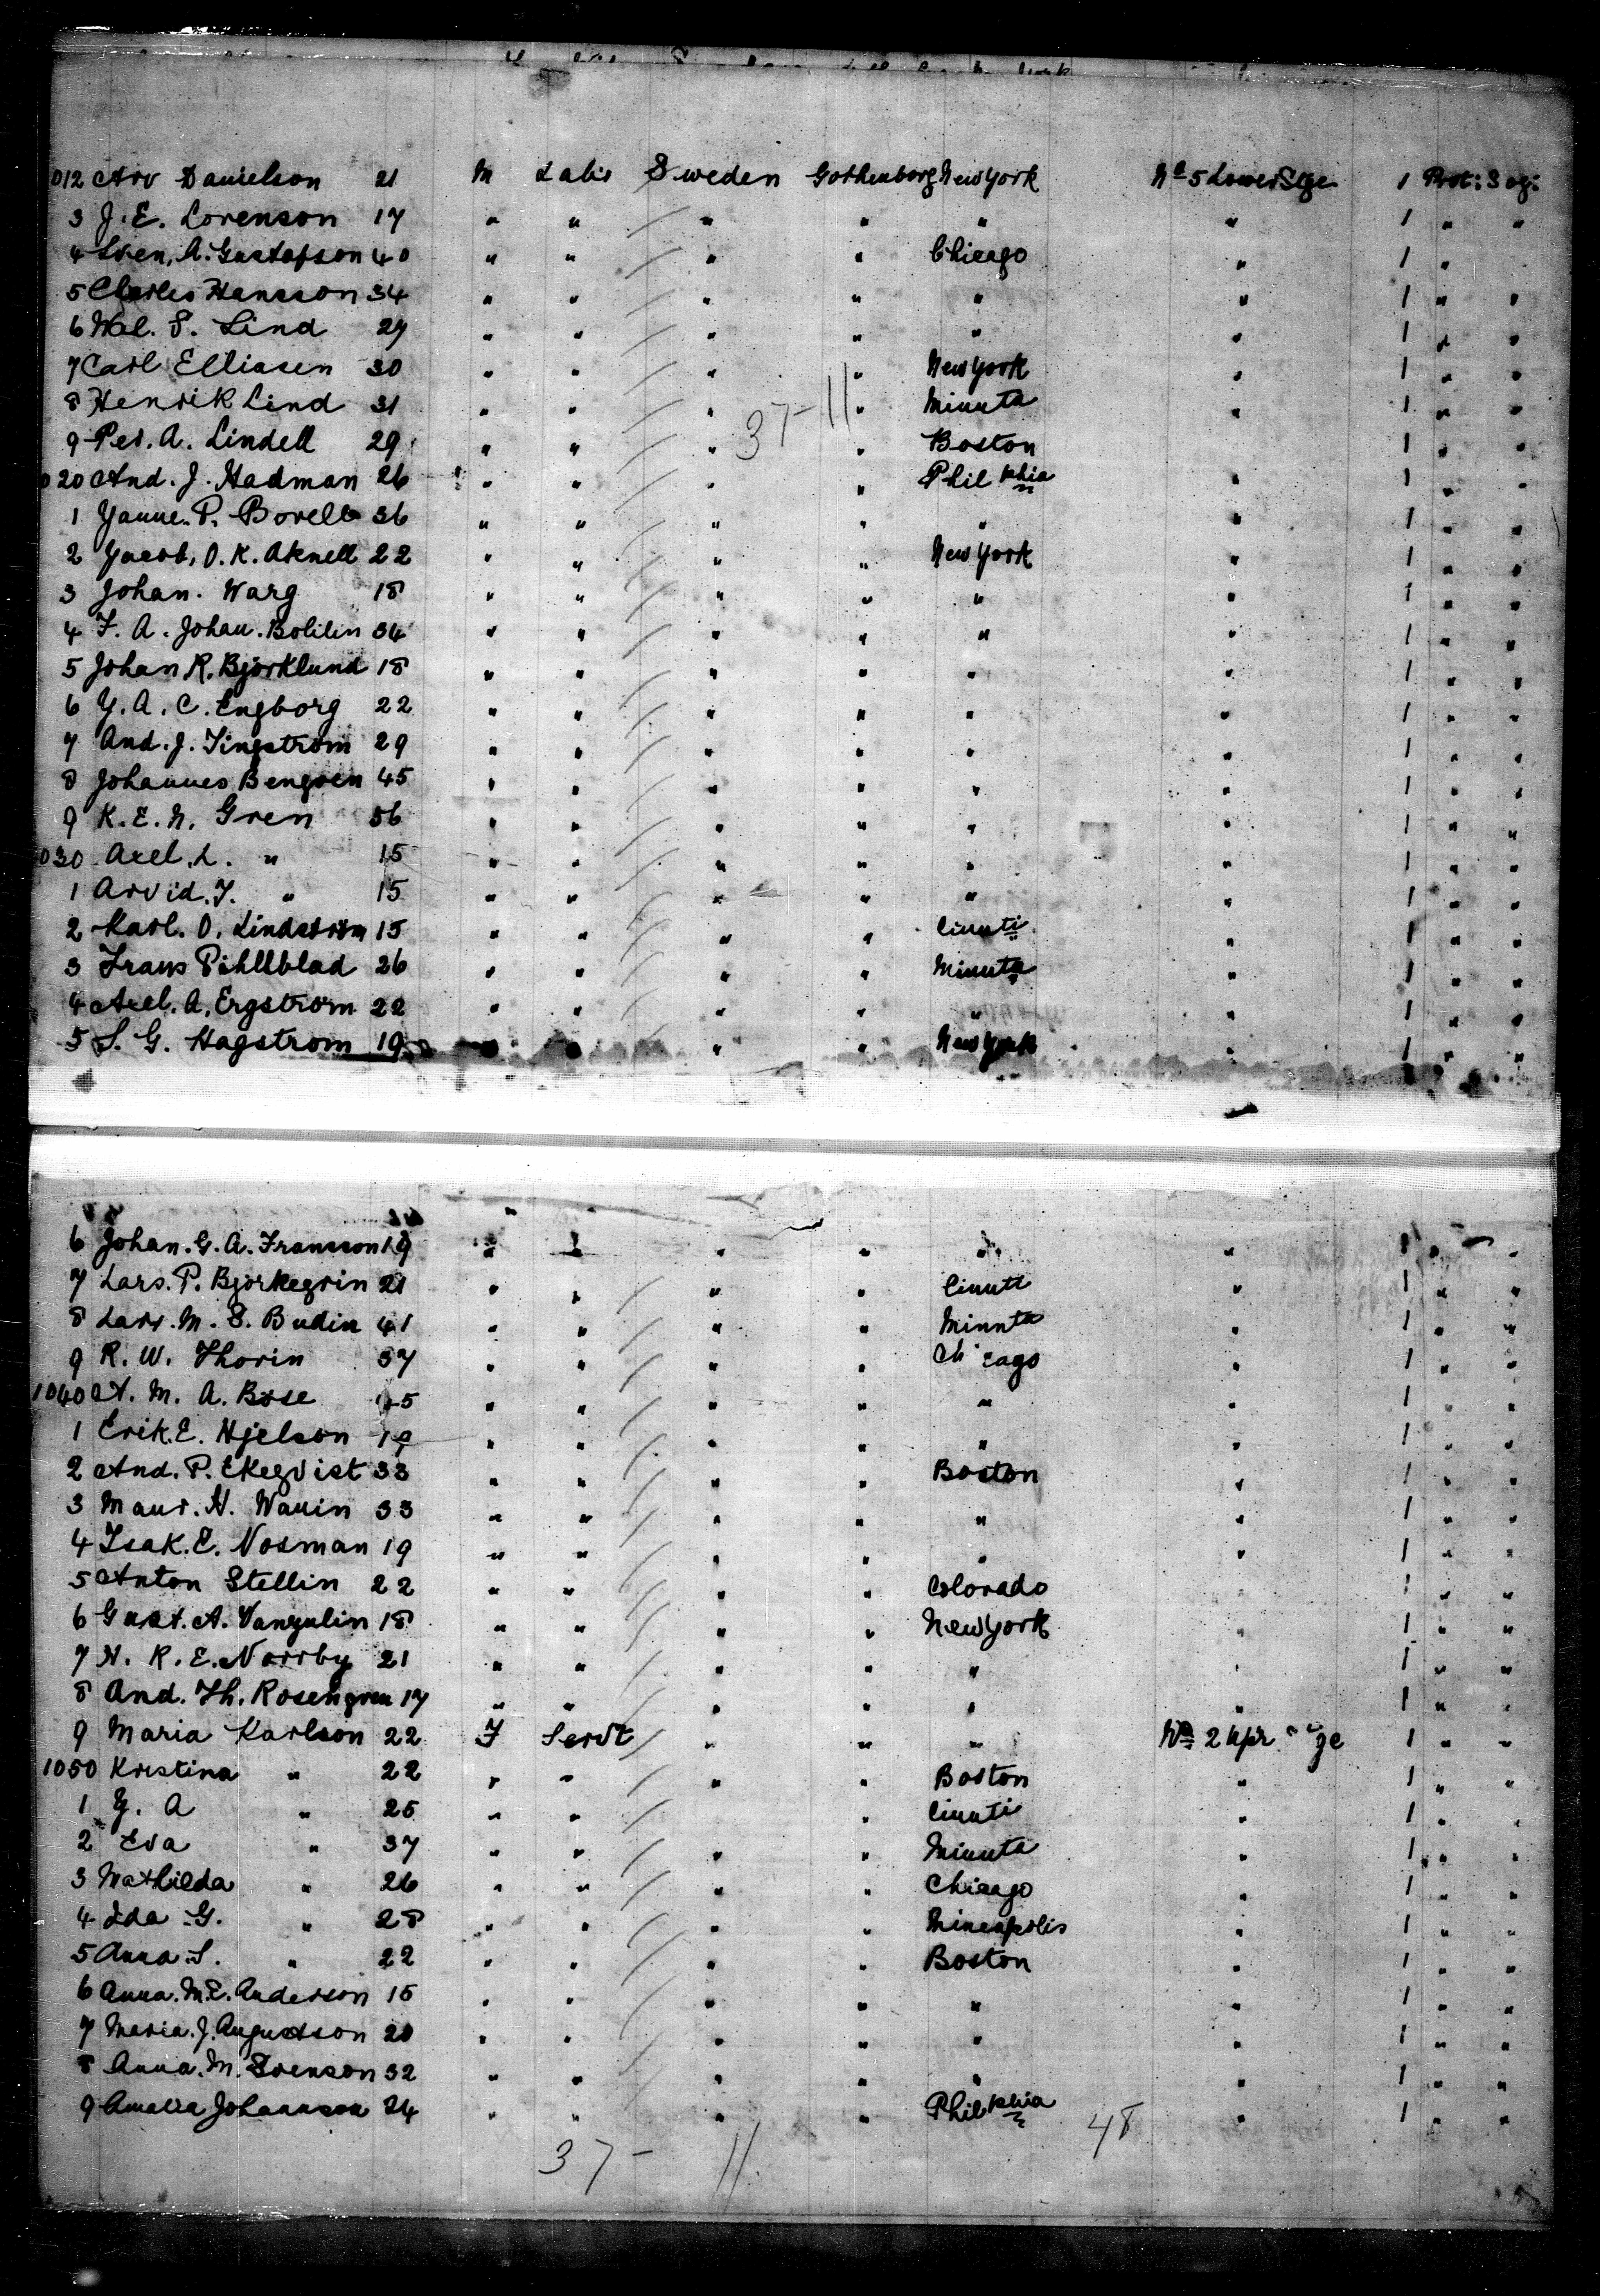 012 Arv Danielson 21 M Labr Sweden Gothenborg New York No 5 Lower Stge 1 Prot: Sogi
3 J. E. Lorenson 17 " " " " " " 1 " "
4 Sven. A. Gustafson 40 " " " " Chicago " 1 " "
5 Charles Hansson 34 " " " " " " 1 " "
6 Wil. S. Lind 27 " " " " " " 1 " "
7 Carl Elliasen 30 " " " " New York " 1 " "
8 Henrik Lind 31 " " " " Minnta " 1 " "
37-11
9 Per. A. Lindell 29 " " " " Boston 1 " "
020 And. J. Hadman 26 " " " " Philphia " 1 " "
1 Yanne. P. Borell 36 " " " " " " 1 " "
2 Yacob, O. K. Aknell 22 " " " " New York " 1 " "
3 Johan. Warg 18 " " " " " " 1 " "
4 F. A. Johan. Bolilin 34 " " " " " " 1 " "
5 Johan R. Bjorklund 18 " " " " " " 1 " "
6 Y. A. C. Engborg 22 " " " " " " 1 " "
7 And. J. Tingstrom 29 " " " " " " 1 " "
8 Johannes Bengsen 45 " " " " " " 1 " "
9 K. E. N. Gren 56 " " " " " " 1 " "
030 Axel. L. " 15 " " " " " " 1 " "
1 Arvid. J. " 15 " " " " " " 1 " "
2 Karl. O. Lindström 15 " " " " Cinnti " 1 " "
3 Frans Pihllblad 26 " " " " Minnta " 1 " "
4 Axel. A. Ergström 22 " " " " " " 1 " "
5 S. G. Hagstrom 19 " " " " New York " 1 " "
6 Johan. G. A. Fransson 19 " " " " " " 1 " "
7 Lars. P. Bjorkegrin 21 " " " " Cinnti " 1 " "
8 Lars. M. S. Budin 41 " " " " Minnta " 1 " "
9 R. W. Thorin 37 " " " " Chicago " 1 " "
1040 A. M. A. Bose " " " " " " 1 " "
1 Erik. E. Hjelson 19 " " " " " " 1 " "
2 And. P. Ekeqvist 33 " " " " Boston " 1 " "
3 Maur. H. Wanin 33 " " " " " " 1 " "
4 Isak. E. Nosman 19 " " " " " " 1 " "
5 Anton Stellin 22 " " " " Colorado 1 " "
6 Gust. A. Vangulin 18 " " " " New York " 1 " "
7 H. R. E. Norrby 21 " " " " " " 1 " "
8 And. Th. Rosengren 17 " " " " " " 1 " "
9 Maria Karlson 22 F Servt " " " No 2 Upr ge 1 " "
1050 Kristina " 22 " " " " Boston " 1 " "
1 Y. A " 25 " " " " Cinnti " 1 " "
2 Eva " 37 " " " " Minnta " 1 " "
3 Mathilda " 26 " " " " Chicago " 1 " "
4 Ida G. " 28 " " " " Mineapolis " 1 " "
5 Anna. S. " 22 " " " " Boston " 1 " "
6 Anna. M. E. Anderson 15 " " " " " " 1 " "
7 Maria. J. Augustson 20 " " " " " " 1 " "
8 Anna. M. Svenson 32 " " " " " " 1 " "
9 Amalia Johannson 24 " " " " Philphia " 1 " "
37- 11. 48